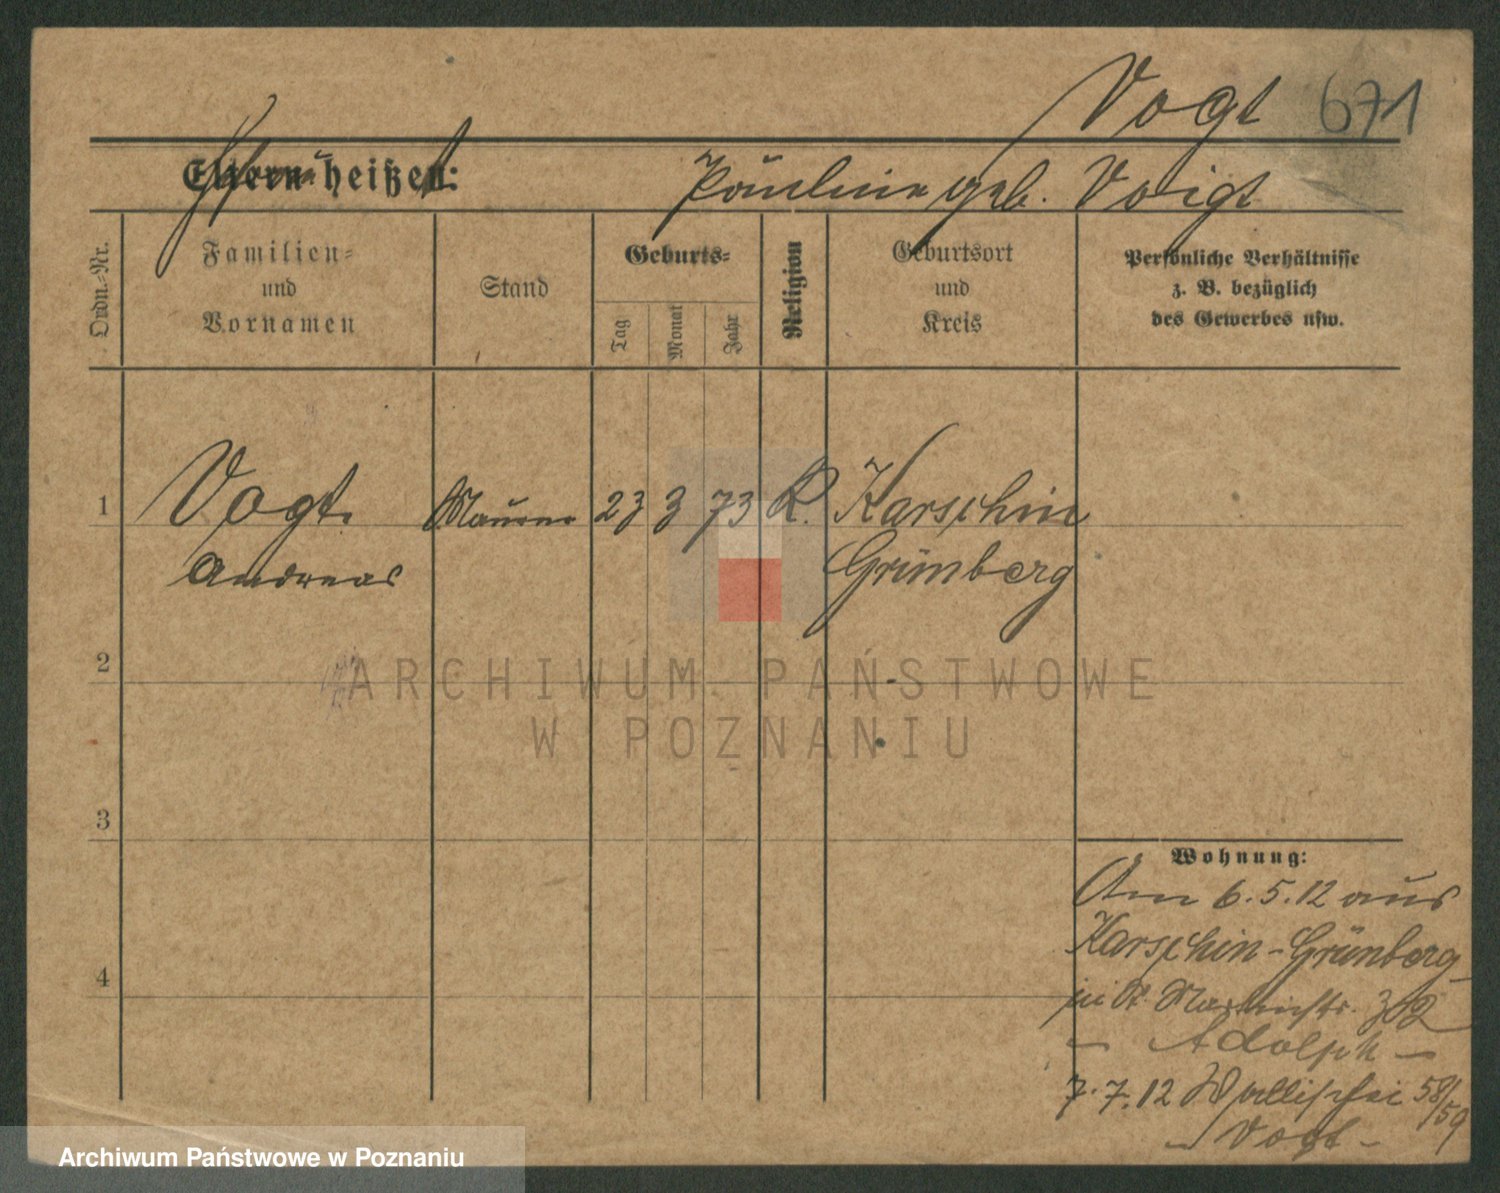 Vogt 671
Eltern heißen:
Pauline geb. Voigt
Ordn.-Nr.
Familien-
und
Vornamen
Stand
Geburts-
Tag
Monat
Jahr
Religion
Geburtsort
und
Kreis
Persönliche Verhältnisse
z. B. bezüglich
des Gewerbes usw.
1 Vogt Maurer 23 3 73 K. Karschin
Andreas Grünberg
2
3
4
ARCHIWUM PAŃSTWOWE
W POZNANIU
Wohnung:
Am 6.5.12 aus
Karschin-Grünberg
- Adolph -
7.7.12 Wallischei 58/59
- Vogt -
Archiwum Państwowe w Poznaniu